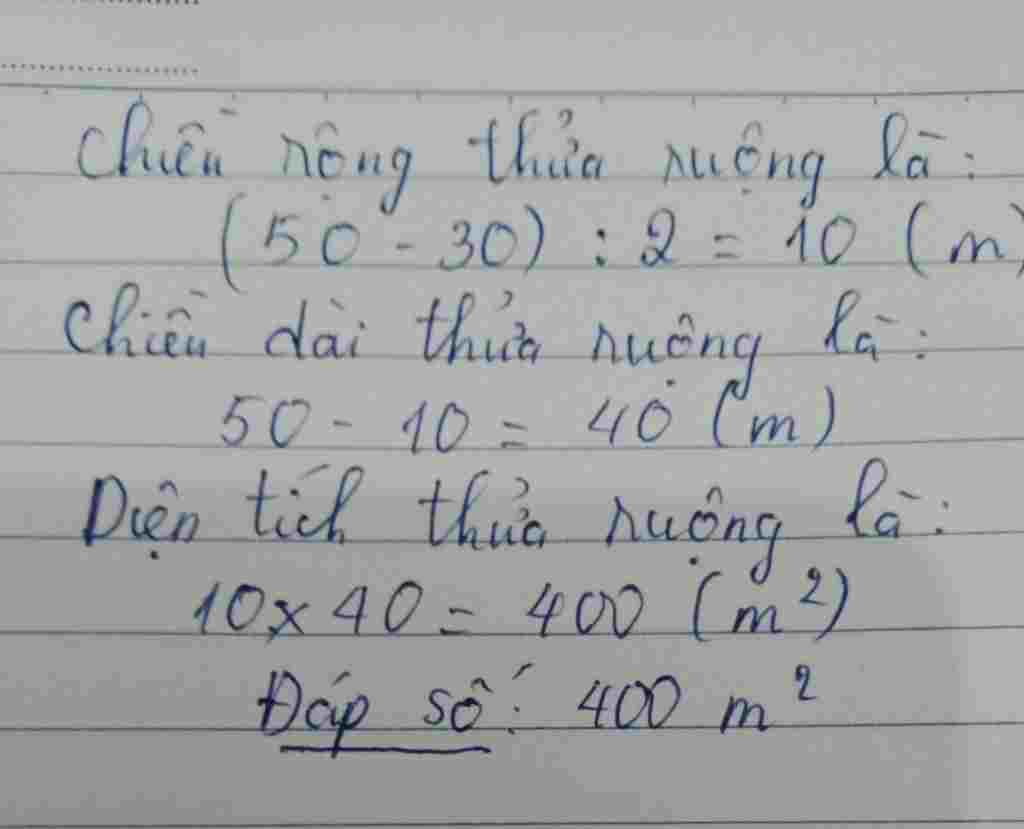 Chiều rộng thửa ruộng là:
(50 - 30) : 2 = 10 (m)
Chiều dài thửa ruộng là:
50 - 10 = 40 (m)
Diện tích thửa ruộng là:
10 x 40 = 400 (m²)
Đáp số: 400 m²